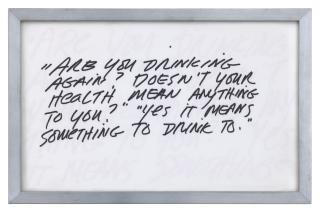 „ARE YOU DRINKING
AGAIN? DOESN'T YOUR
HEALTH MEAN ANYTHING
TO YOU?" "YES IT MEANS
SOMETHING TO DRINK TO."